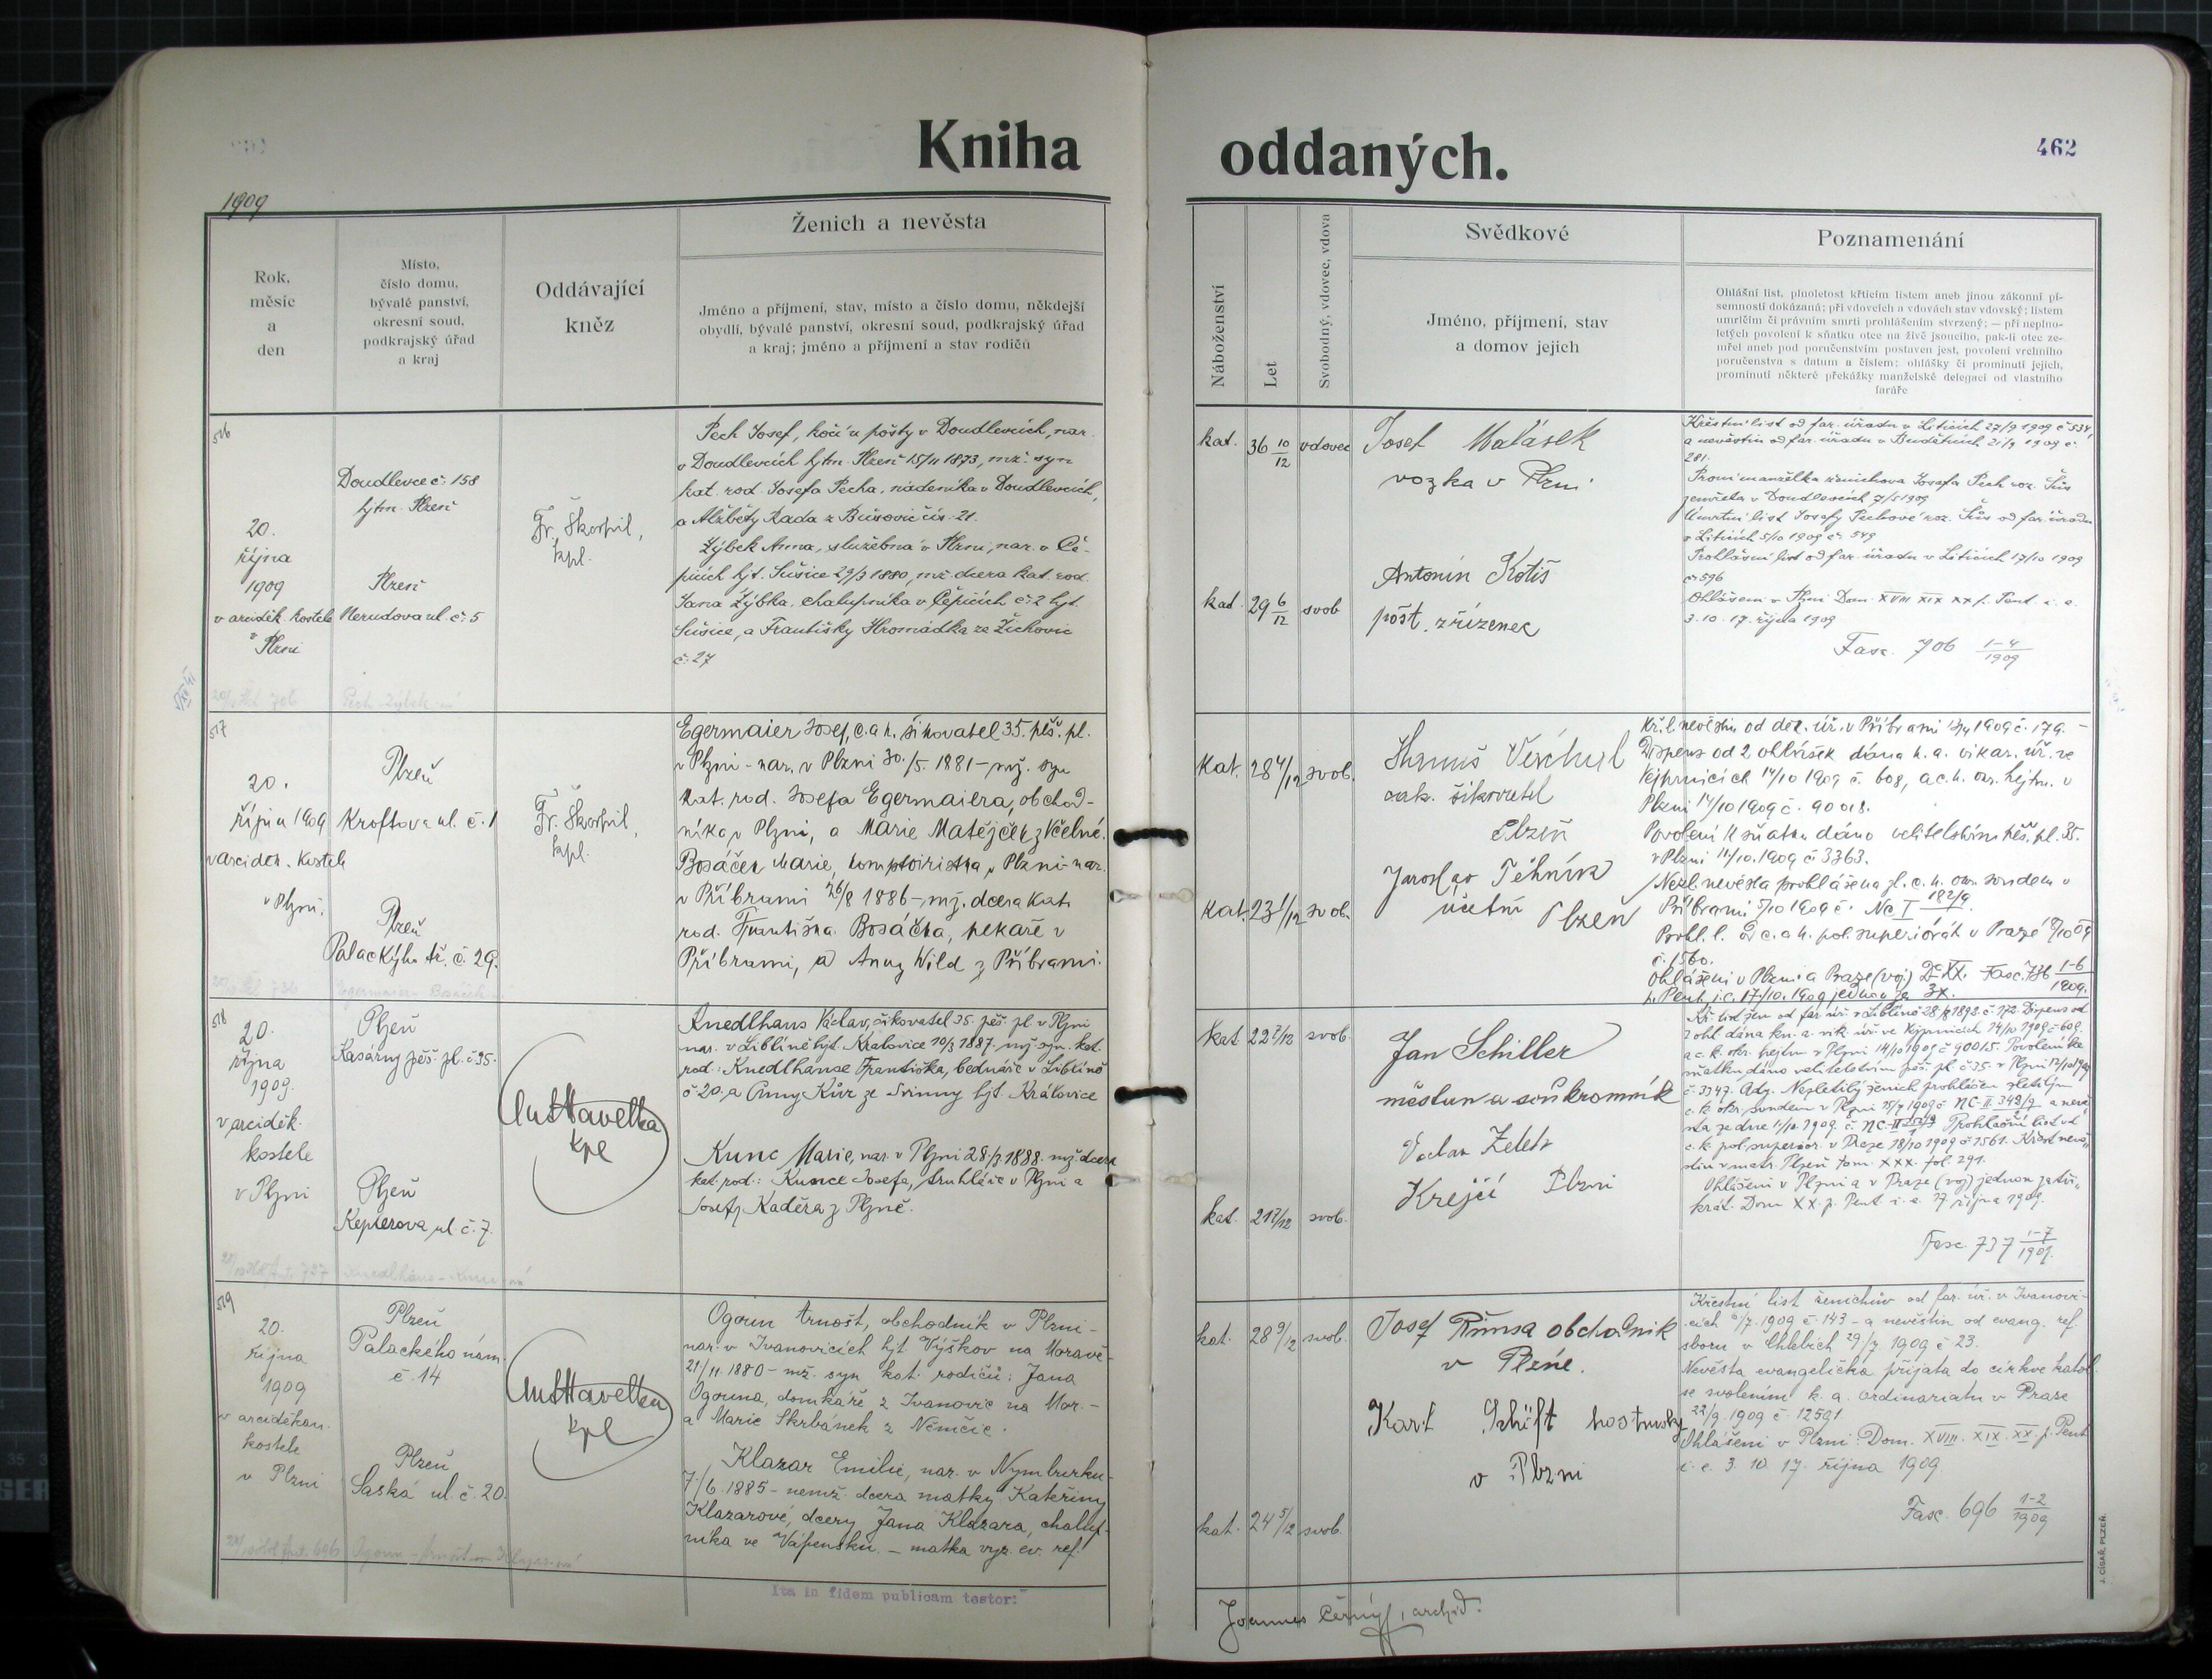 Kniha oddaných.
462
1909
Rok,
měsíc
a
den
Místo,
číslo domu,
bývalé panství,
okresní soud,
podkrajský úřad
a kraj
Oddávající
kněz
Ženich a nevěsta
Jméno a příjmení, stav, místo a číslo domu, někdejší
obydlí, bývalé panství, okresní soud, podkrajský úřad
a kraj; jméno a příjmení a stav rodičů
Náboženství
Let
Svobodný, vdovec, vdova
Svědkové
Jméno, příjmení, stav
a domov jejich
Poznamenání
Ohlášní list, plnoletost křticím listem aneb jinou zákonní pí-
semností dokázaná; při vdovcích a vdovách stav vdovský; listem
umrlčím či právním smrti prohlášením stvrzený; — při neplno-
letých povolení k sňatku otce na živě jsoucího, pak-li otec ze-
mřel aneb pod poručenstvím postaven jest, povolení vrchního
poručenstva s datum a číslem; ohlášky či prominutí jejich,
prominutí některé překážky manželské delegací od vlastního
faráře
516
20.
října
1909
v arciděk. kostele
v Plzni
Doudlevce č. 158
hjtm. Plzeň
Plzeň
Nerudova ul. č. 5
Fr. Škorpil,
kpl.
Pech Josef, kočí u pošty v Doudlevcích, nar.
v Doudlevcích hjtm. Plzeň 15/11 1873, mž. syn
kat. rod. Josefa Pecha, nádeníka v Doudlevcích,
a Alžběty Kada z Bušovic čís. 21.
Žýbek Anna, služebná v Plzni, nar. v Če-
picích hjt. Sušice 29/3 1880, mž. dcera kat. rod.
Jana Žýbka, chalupníka v Čepicích č. 2 hjt.
Sušice, a Františky Hromádka ze Žichovic
č. 27
kat. 36 10/12 vdovec
kat. 29 6/12 svob
Josef Malásek
vozka v Plzni
Antonín Kotiš
pošt. zřízenec
Křestní list od far. úřadu v Liticích 27/9 1909 č 534
a nevěstin od far. úřadu v Buděticích 21/9 1909 č.
281.
První manželka ženichova Josefa Pech roz. Šůs
zemřela v Doudlevcích 7/5 1909
Úmrtní list Josefy Pechové roz. Šůs od far. úřadu
v Liticích 5/10 1909 č. 549
Prohlášní list od far. úřadu v Liticích 17/10 1909
č. 596
Ohlášeni v Plzni Dom. XVIII XIX XX p. Pent. i. e.
3. 10. 17. října 1909
Fasc. 706 1-4/1909
517
20.
října 1909
v arciděk. kostele
v Plzni.
Plzeň
Kroftova ul. č. 1
Plzeň
Palackýho tř. č. 29.
Fr. Škorpil,
kpl.
Egermaier Josef, c. a k. šikovatel 35. pěš. pl.
v Plzni - nar. v Plzni 30./5. 1881 - mž. syn
kat. rod. Josefa Egermaiera, obchod-
níka v Plzni, a Marie Matějček z Včelné.
Bosáček Marie, komptoiristka v Plzni - nar.
v Příbrami 26/8 1886 - mž. dcera kat.
rod. Františka Bosáčka, pekaře v
Příbrami, a Anny Wild z Příbrami.
kat. 28 4/12 svob.
kat. 23 1/12 svob.
šikovatel
Plzeň
Jaroslav
účetní Plzeň
Kř. l. nevěstin od děk. úř. v Příbrami 1909 č. 179. -
Dispens od 2 ohlášek dána k. a. vikar. úř. ve
Vejprnicích 14/10 1909 č. 608, a c. k. okr. hejtm. v
Plzni 14/10 1909 č. 90018.
Povolení k sňatku dáno velitelstvím pěš. pl. 35.
v Plzni 14/10. 1909 č. 3363.
Nezl. nevěsta prohlášena zl. c. k. okr. soudem v
Příbrami 5/10 1909 č. Nc I 182/9.
Prohl. l. od c. a k. pol. superiorát v Praze
č. 1560.
Ohlášeni v Plzni a Praze (voj) D. XX. Fasc. 736 1-6/1909.
p. Pent. i. e. 17/10. 1909 jednou za 3x.
518
20.
října
1909.
v arciděk.
kostele
v Plzni
Plzeň
Kasárny pěš. pl. č 35.
Plzeň
Keplerova ul. č. 7.
Ant Havelka
kpl
Knedlhans Václav, šikovatel 35. pěš. pl. v Plzni
nar. v Liblíně hjt. Kralovice 10/3 1887. mž. syn. kat.
rod.: Knedlhanse Františka, bednáře v Liblíně
č 20. a Anny Kůr ze Svinny hjt. Kralovice
Kunc Marie, nar. v Plzni 28/3 1888. mž. dcera
kat. rod.: Kunce Josefa, truhláře v Plzni a
Josefy Kaděra z Plzně.
kat 22 7/12 svob.
kat. 21 7/12 svob.
Jan Schiller
měšťan a soukromník
Václav
Krejčí Plzni
2 ohl. dána kn. a. vik. úř. ve Vejprnicích 14/10 1909 č. 609.
a c. k. okr. hejtm. v Plzni 14/10 1909 č 90015. Povolení ke
sňatku dáno velitelstvím pěš. pl. č 35. v Plzni
č. 3347. Adj. Nezletilý ženich prohlášen zletilým
c. k. okr. soudem v Plzni 1909 č NC-II-343/9 a nevě-
c. k. pol. superior. v Praze 18/10 1909 č 1561. Křest nevě-
stin v matr. Plzeň tom. XXX. fol. 291.
Ohlášeni v Plzni a v Praze (voj) jednou za tři-
krát. Dom XX. p. Pent. i. e. 17 října 1909.
Fasc. 737 1-7/1909.
519
20.
října
1909
v arciděkan.
kostele
v Plzni
Plzeň
Palackého nám.
č. 14
Plzeň
Saská ul. č. 20.
Ant Havelka
kpl
Ogoun Arnošt, obchodník v Plzni -
nar. v Ivanovicích hjt. Výškov na Moravě -
21/11. 1880 - mž. syn kat. rodičů: Jana
Ogouna, domkáře z Ivanovic na Mor. -
a Marie Skrbánek z Němčic.
Klazar Emilie, nar. v Nymburku
7./6. 1885 - nemž. dcera matky Kateřiny
Klazarové, dcery Jana Klazara, chalup-
níka ve Vápensku. - matka vyz. ev. ref.
kat. 28 9/12 svob.
kat. 24 5/12 svob.
Josef Římsa obchodník
v Plzne.
Karl Schift hostinský
v Plzni
Křestní list ženichův od far. úř. v Ivanovi-
cích 1909 č. 143 - a nevěstin od evang. ref.
sboru v Chlebích 29/7 1909 č 23.
Nevěsta evangelička přijata do církve katol.
se svolením k. a. ordinariatu v Praze
22/9. 1909 č. 12591.
Ohlášeni v Plzni: Dom. XVIII. XIX. XX. p. Pent
i. e. 3. 10. 17. října 1909.
Fasc. 696 1-2/1909
Ita in fidem publicam testor:
Joannes Černý, archid.
J. CÍSAŘ, PLZEŇ.